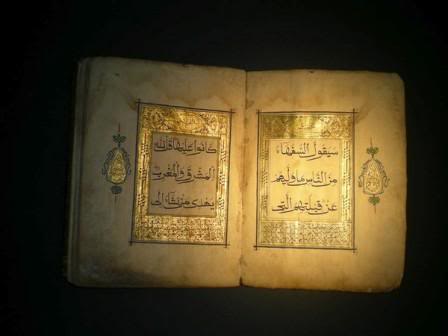 سيقول السفهاء
من الناس ما وليهم
عن قبلتهم التي
كانوا عليها قل لله
المشرق والمغرب
يهدي من يشاء الى